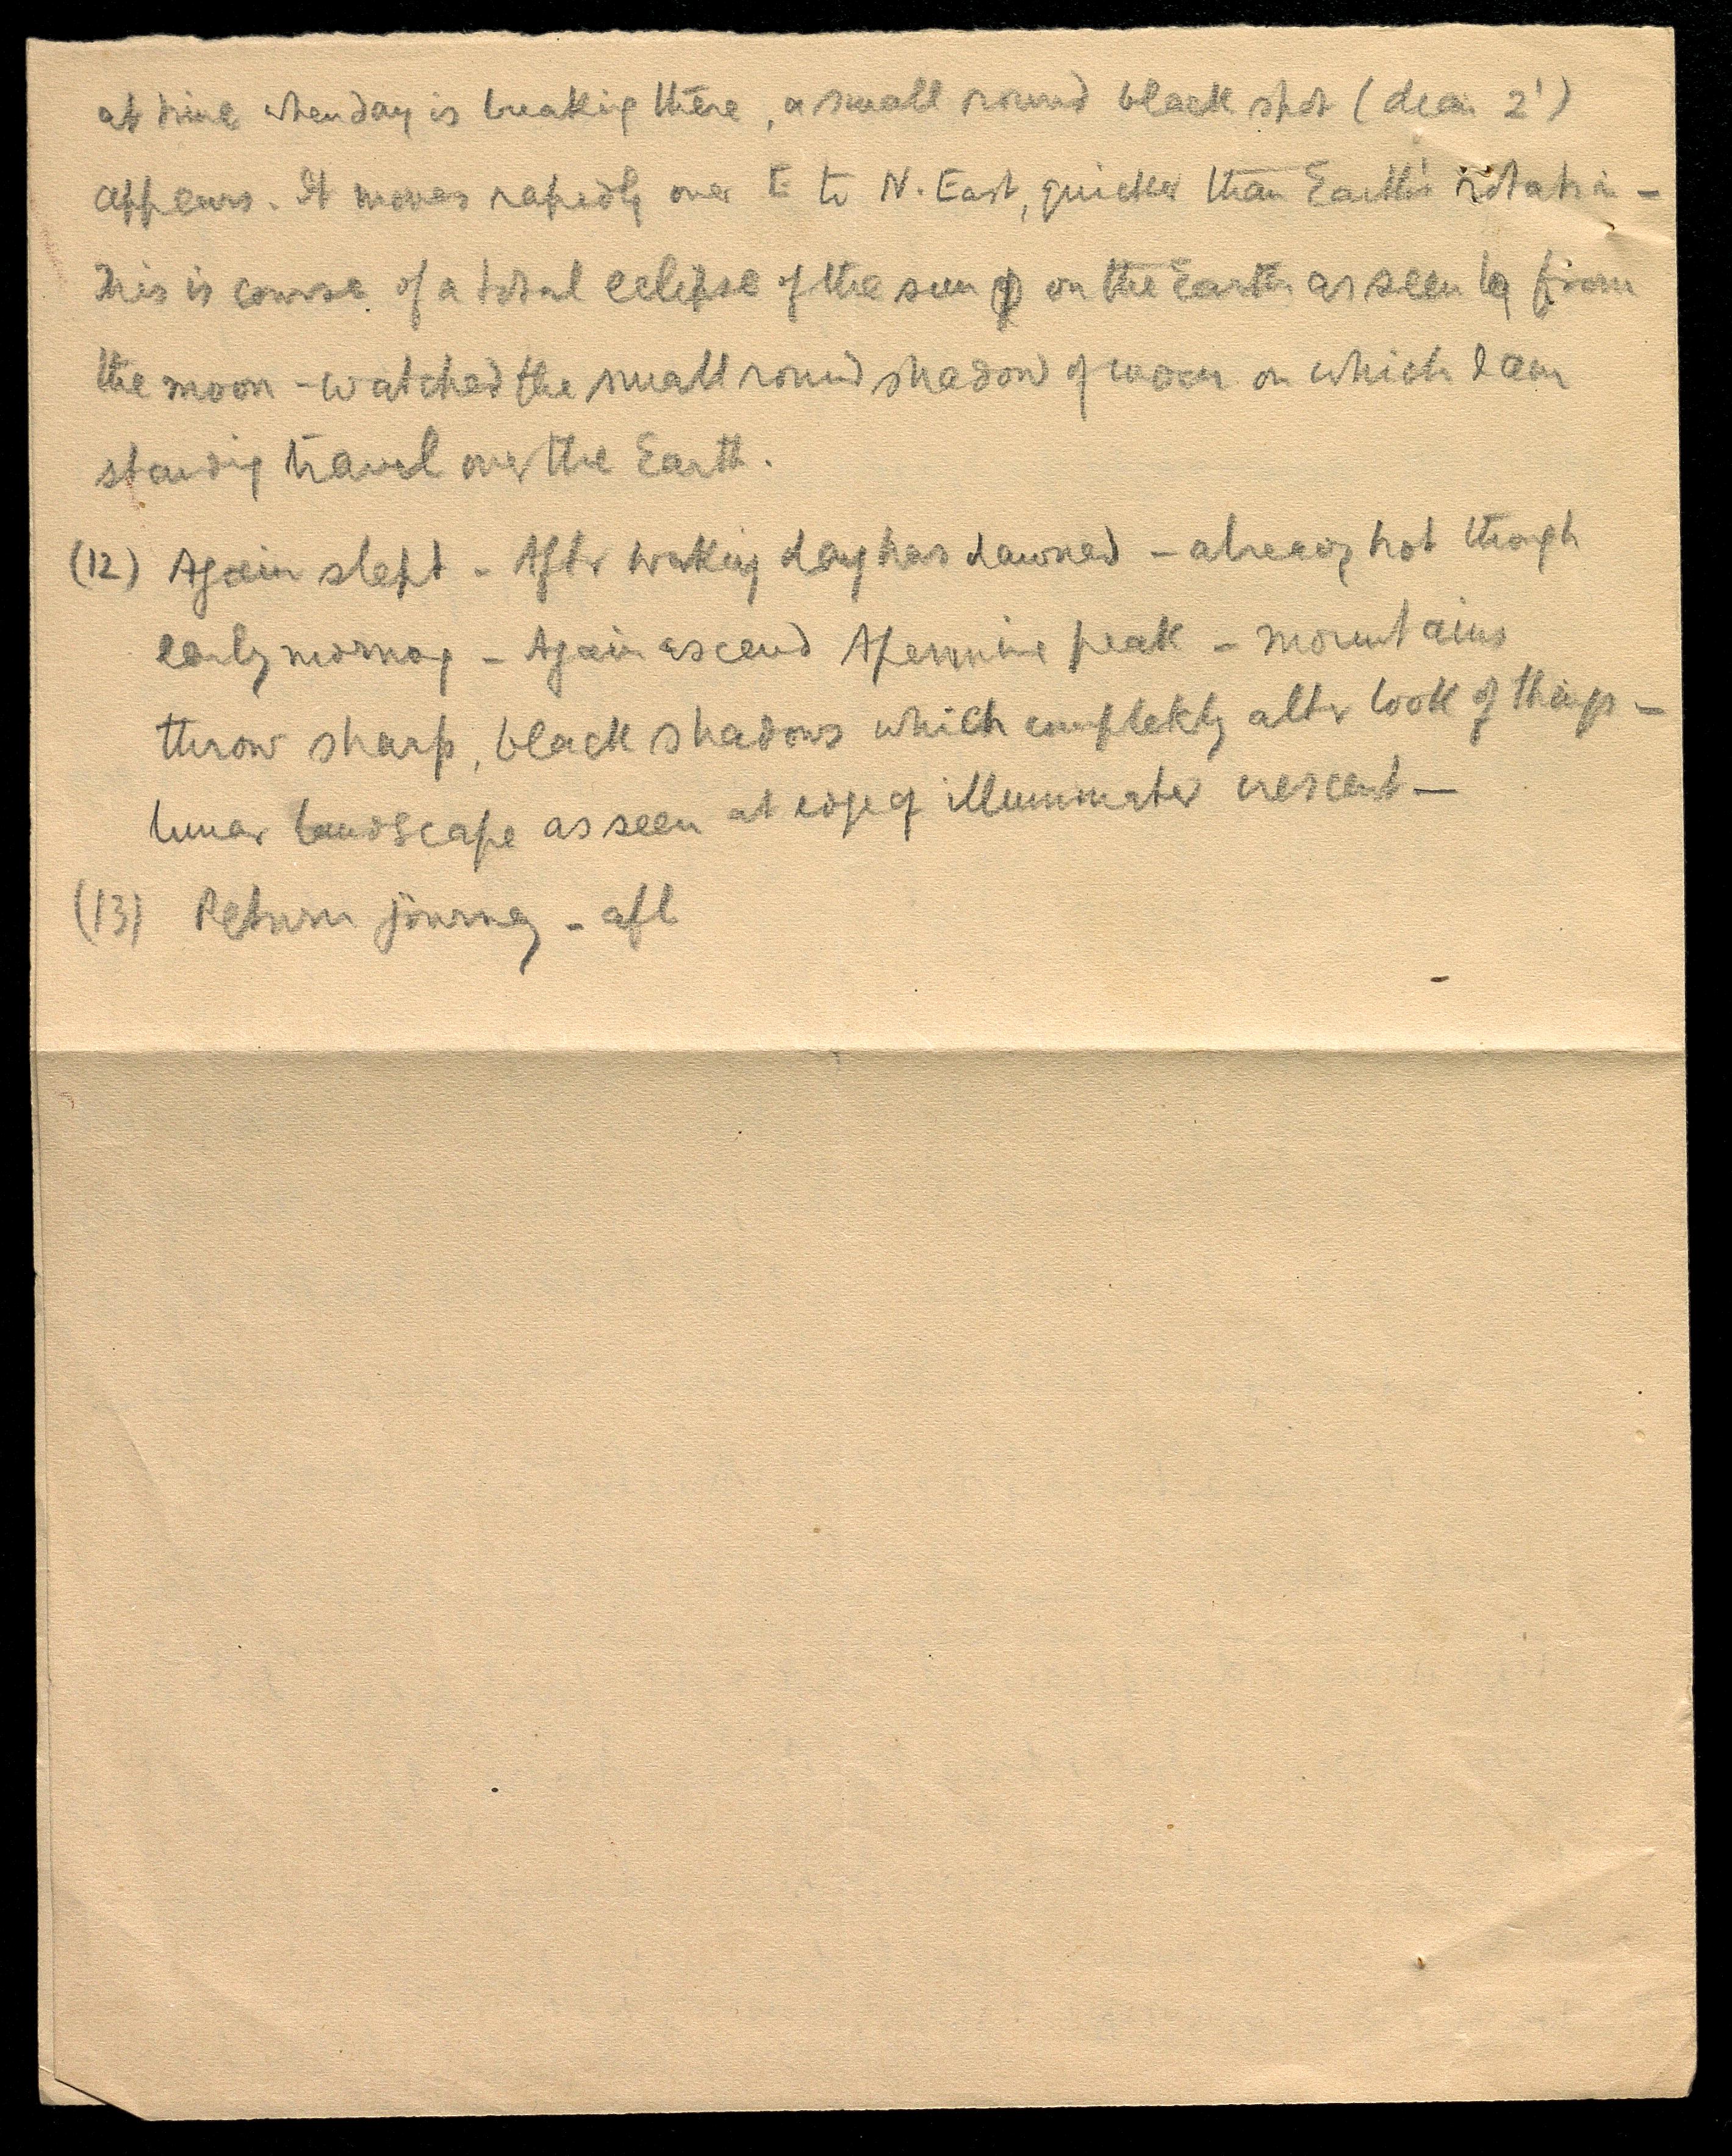 at time when day is breaking there, a small round black spot (diam 2')
appears. It moves rapidly over E to N. East, quicker than Earth's rotation -
This is course of a total eclipse of the sun on the Earth as seen from
the moon - watched the small round shadow of moon on which I am
standing travel over the Earth.
(12) Again slept - After waking day has dawned - already hot though
early morning - Again ascend Apennine peak - mountains
throw sharp, black shadows which completely alter look of things -
lunar landscape as seen at edge of illuminated crescent -
(13) Return journey - aft